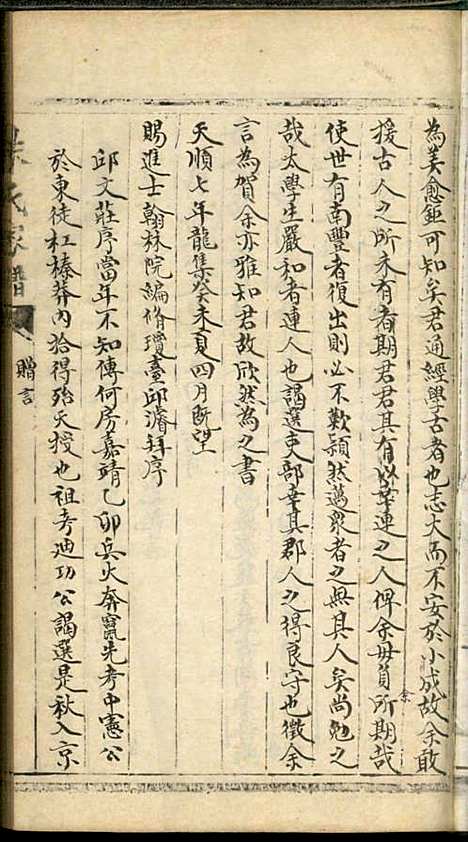 為美愈鉅可知矣君通經學古者也志大而不安於小成故余敢
援古人之所未有者期君君其有以幸連之人俾余毋負所期哉
余
使世有南豐者復出則必不歎頴然遇衆者之無其人矣尚勉之
哉太學生嚴和者連人也謁選吏部幸其郡人之得良守也徵余
言為賀余亦雅知君故欣然為之書
天順七年龍集癸未夏四月既望
賜進士翰林院編脩瓊臺邱濬拜序
邱文莊序當年不知傳何房嘉靖乙卯兵火奔竄先考中憲公
於東徒杠榛莽內拾得殆天授也祖考迪功公謁選是秋入京
氏家譜
贈言